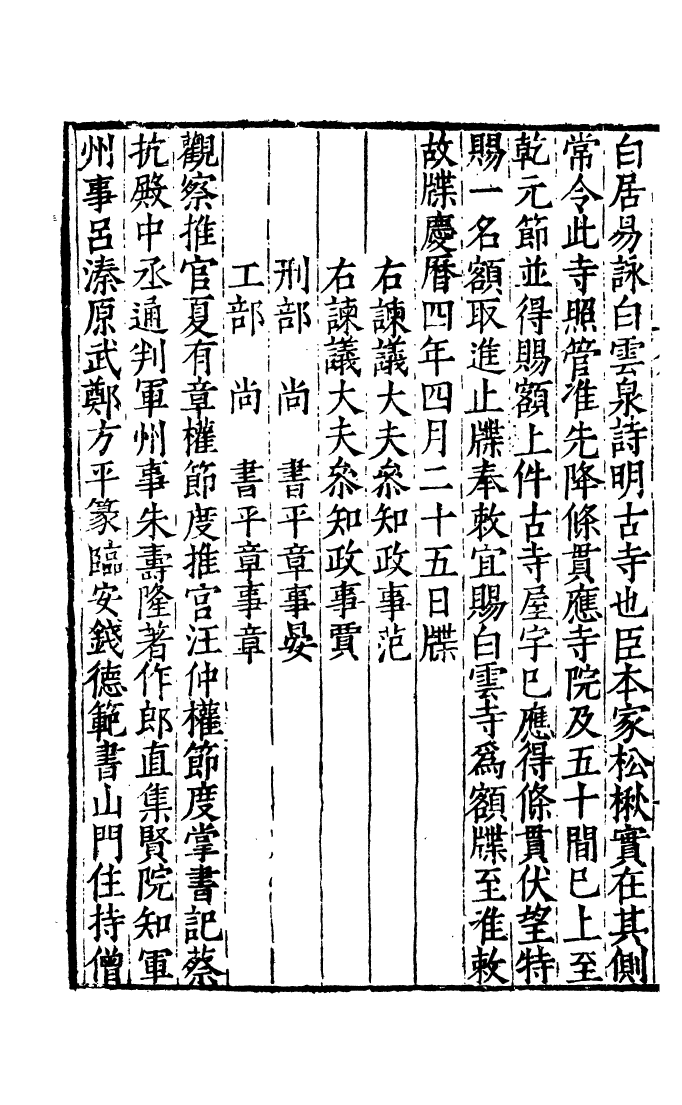 白居易詠白雲泉詩明古寺也臣本家松楸實在其側
常令此寺照管准先降條貫應寺院及五十間已上至
乾元節並得賜額上件古寺屋宇已應得條貫伏望特
賜一名額取進止牒奉敕宜賜白雲寺爲額牒至准敕
故牒慶曆四年四月二十五日牒
右諫議大夫叅知政事范
右諫議大夫叅知政事賈
刑部 尚 書平章事晏
工部 尚 書平章事章
觀察推官夏有章權節度推官汪仲權節度掌書記蔡
抗殿中丞通判軍州事朱壽隆著作郎直集賢院知軍
州事呂溱原武鄭方平篆臨安錢德範書山門住持僧